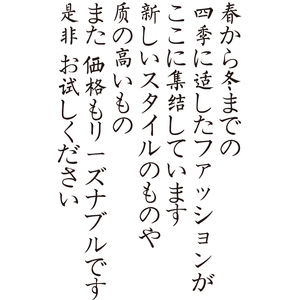 春から冬までの
四季に适したファッションが
ここに集结しています
新しいスタイルのものや
质の高いもの
また 価格もリーズナブルです
是非 お試しください